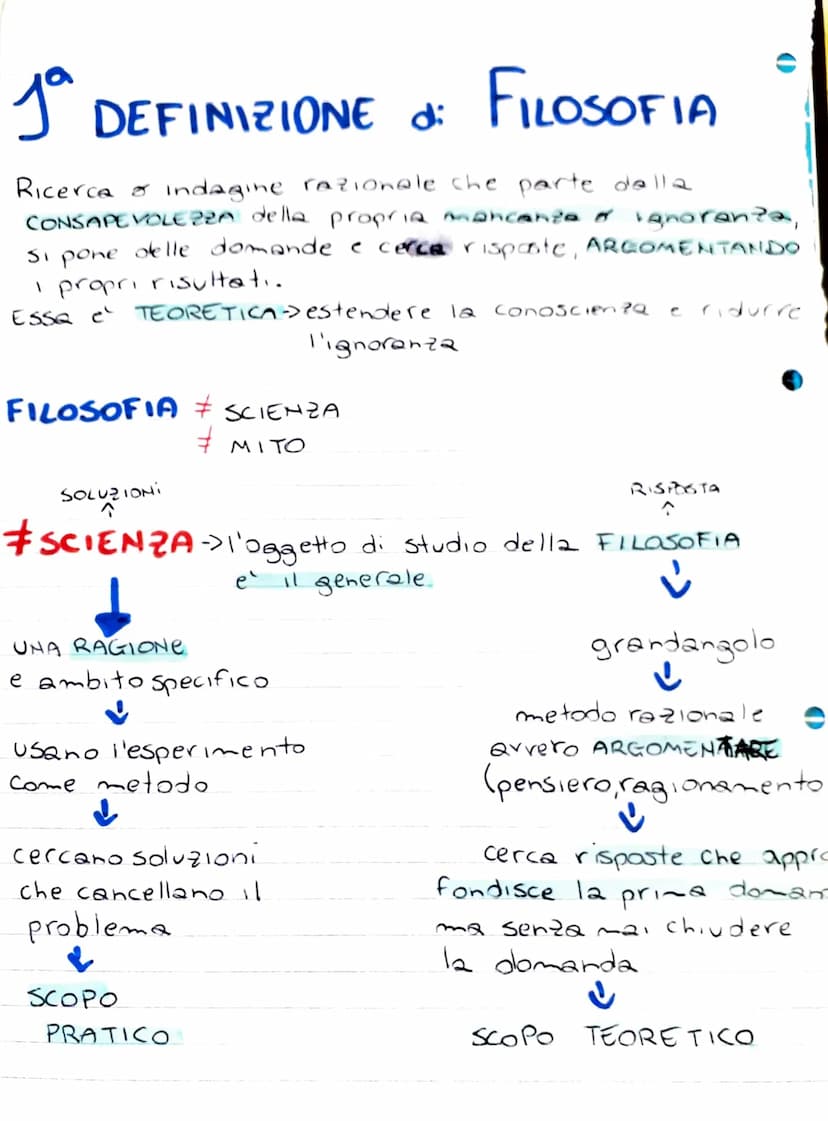 1ª DEFINIZIONE di FILOSOFIA
Ricerca o indagine razionale che parte dalla
CONSAPEVOLEZZA della propria mancanza o ignoranza,
si pone delle domande e cerca risposte, ARGOMENTANDO
i propri risultati.
Essa e' TEORETICA -> estendere la conoscienza e ridurre
l'ignoranza
FILOSOFIA ≠ SCIENZA
≠ MITO
SOLUZIONI
RISPOSTA
≠ SCIENZA -> l'oggetto di studio della FILOSOFIA
e' il generale.
UNA RAGIONE
grandangolo
e ambito specifico
metodo razionale
usano l'esperimento
avvero ARGOMENTARE
come metodo
(pensiero, ragionamento
cercano soluzioni
cerca risposte che appro
che cancellano il
fondisce la prima doman
problema
ma senza mai chiudere
la domanda
SCOPO
PRATICO
SCOPO TEORETICO